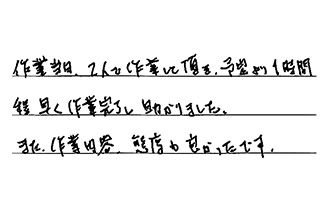 作業当日、2人で作業して頂き、予定より1時間
程早く作業完了し助かりました。
また、作業内容、態度も良かったです。